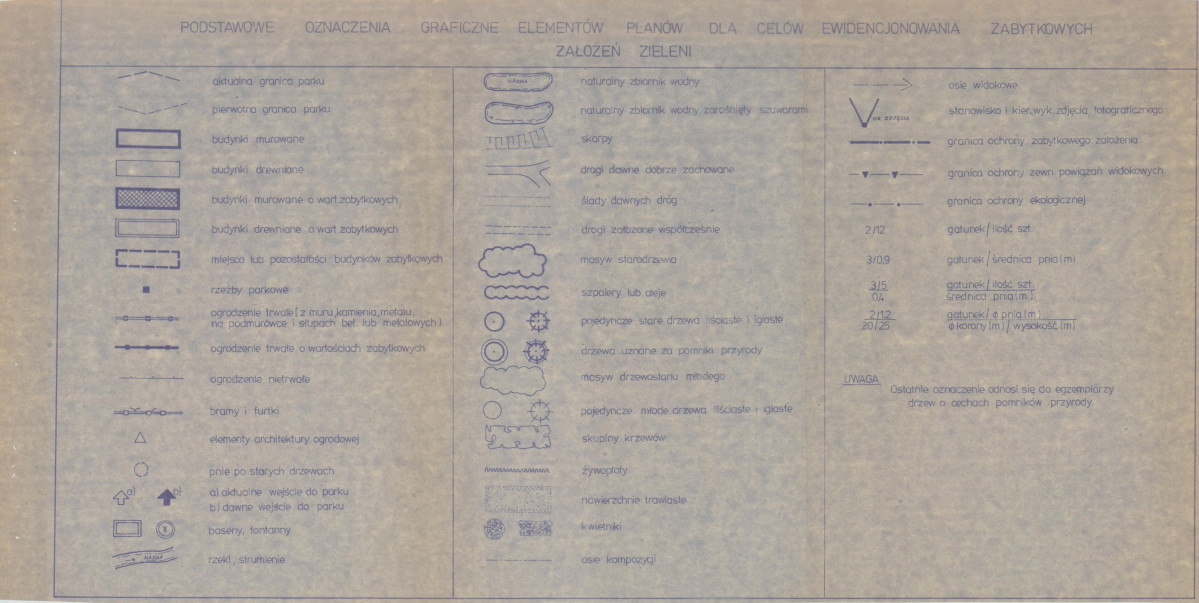 PODSTAWOWE OZNACZENIA GRAFICZNE ELEMENTÓW PLANÓW DLA CELÓW EWIDENCJONOWANIA ZABYTKOWYCH
ZAŁOŻEŃ ZIELENI
aktualna granica parku
pierwotna granica parku
budynki murowane
budynki drewniane
budynki murowane o wart. zabytkowych
budynki drewniane o wart. zabytkowych
miejsca lub pozostałości budynków zabytkowych
rzeźby parkowe
ogrodzenie trwałe ( z muru, kamienia, metalu,
na podmurówce i słupach bet. lub metalowych )
ogrodzenie trwałe o wartościach zabytkowych
ogrodzenie nietrwałe
bramy i furtki
elementy architektury ogrodowej
pnie po starych drzewach
a) b) a) aktualne wejście do parku
b) dawne wejście do parku
baseny, fontanny
NAZWA rzeki, strumienie
NAZWA naturalny zbiornik wodny
naturalny zbiornik wodny zarośnięty szuwarami
skarpy
drogi dawne dobrze zachowane
ślady dawnych dróg
drogi założone współcześnie
masyw starodrzewia
szpalery lub aleje
pojedyncze stare drzewa liściaste i iglaste
drzewa uznane za pomniki przyrody
masyw drzewostanu młodego
pojedyncze młode drzewa liściaste i iglaste
skupiny krzewów
żywopłoty
nawierzchnie trawiaste
kwietniki
osie kompozycji
osie widokowe
NR ZDJĘCIA stanowisko i kier. wyk. zdjęcia fotograficznego
granica ochrony zabytkowego założenia
granica ochrony zewn. powiązań widokowych
granica ochrony ekologicznej
2/12 gatunek / ilość szt.
3/0,9 gatunek / średnica pnia (m)
3/5 gatunek / ilość szt.
0,4 średnica pnia (m)
2/1,2 gatunek / ø pnia (m)
20/25 ø korony (m) / wysokość (m)
UWAGA
Ostatnie oznaczenie odnosi się do egzemplarzy
drzew o cechach pomników przyrody